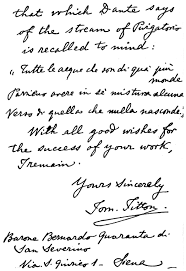 that which Dante says
of the stream of Purgatorio
is recalled to mind.
"Tutte le acque che son di qui più
monde
Parrieno avere in sè mistura alcuna
Verso di quella che nulla nasconde."
With all good wishes for
the success of your work,
I remain
Yours Sincerely
Tom.
Barone Bernardo Quaranta di
San Severino
Via S. Quirico 1 - Siena